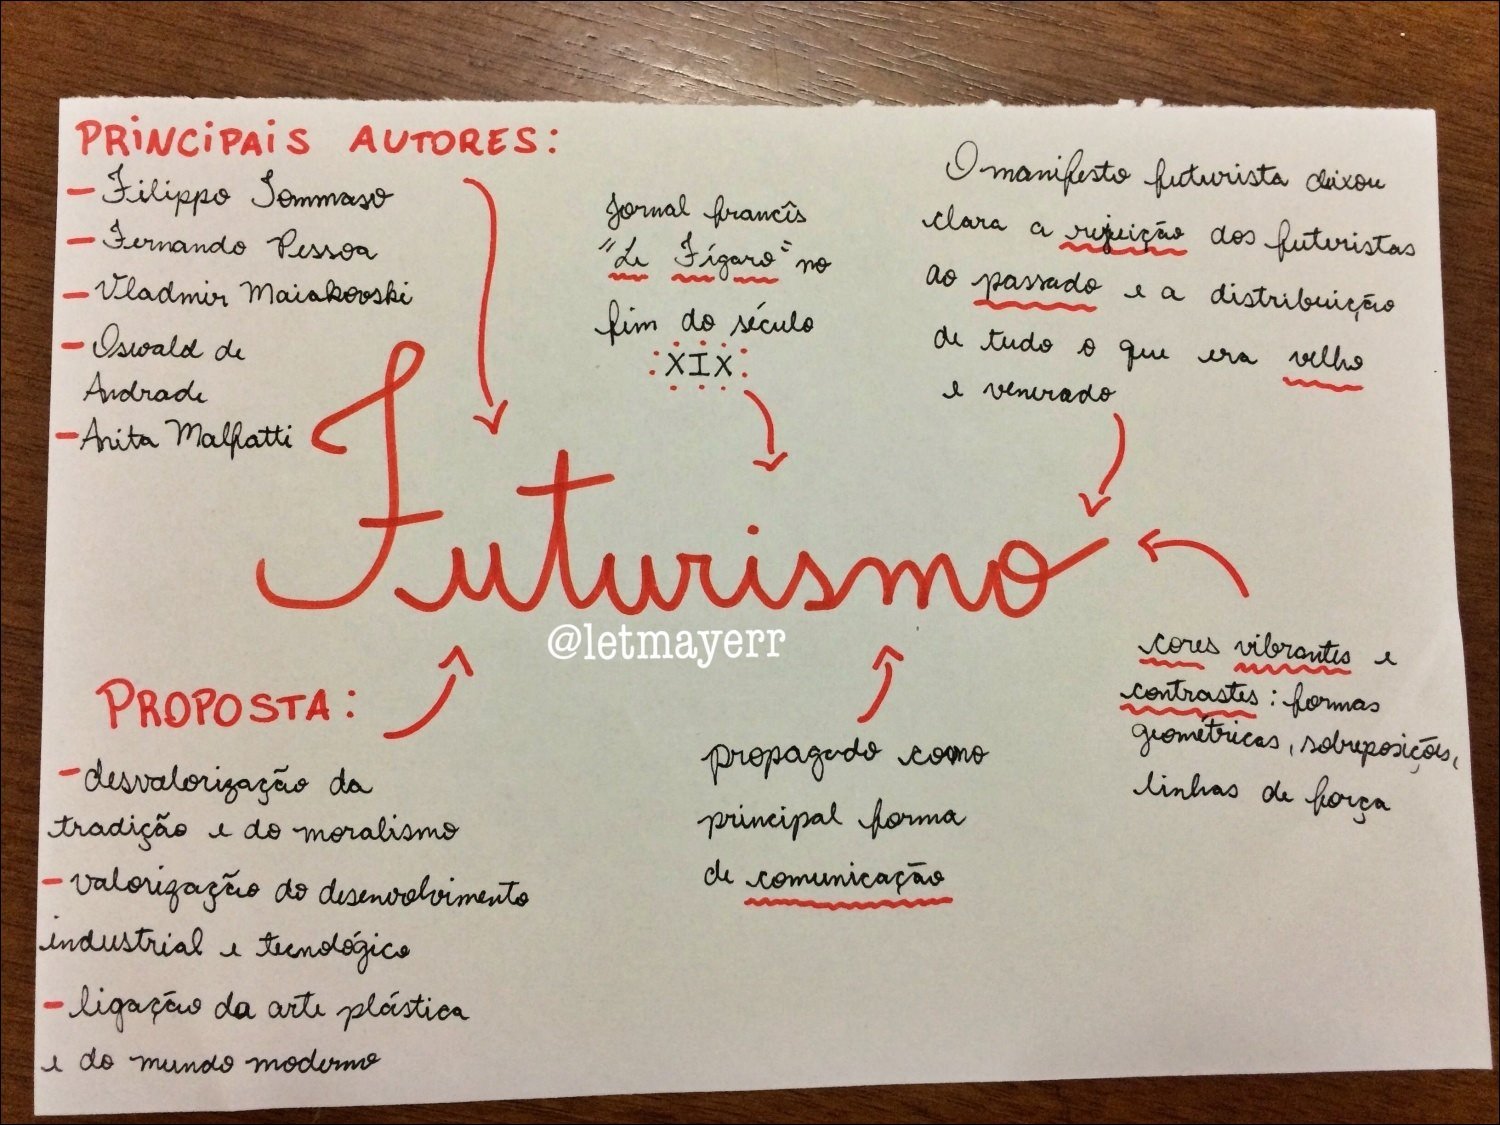 PRINCIPAIS AUTORES:
- Filippo Tommaso
- Fernando Pessoa
- Vladmir Maiakovski
- Oswald de
Andrade
- Anita Malfatti
Jornal francês
"Le Fígaro" no
fim do século
XIX
O manifesto futurista deixou
clara a rejeição dos futuristas
ao passado e a distribuição
de tudo o que era velho
e venerado
Futurismo
@letmayerr
PROPOSTA:
- desvalorização da
tradição e do moralismo
- valorização do desenvolvimento
industrial e tecnológico
- ligação da arte plástica
e do mundo moderno
propagado como
principal forma
de comunicação
cores vibrantes e
contrastes: formas
geométricas, sobreposições,
linhas de força